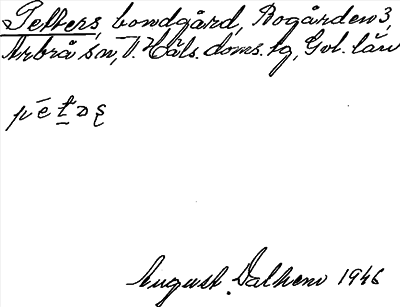 Petters, bondgård, Aogården 3,
Arbrå sn, V. Häls. doms. tg, Gvl. län
pētds̨
August Dalhem 1946